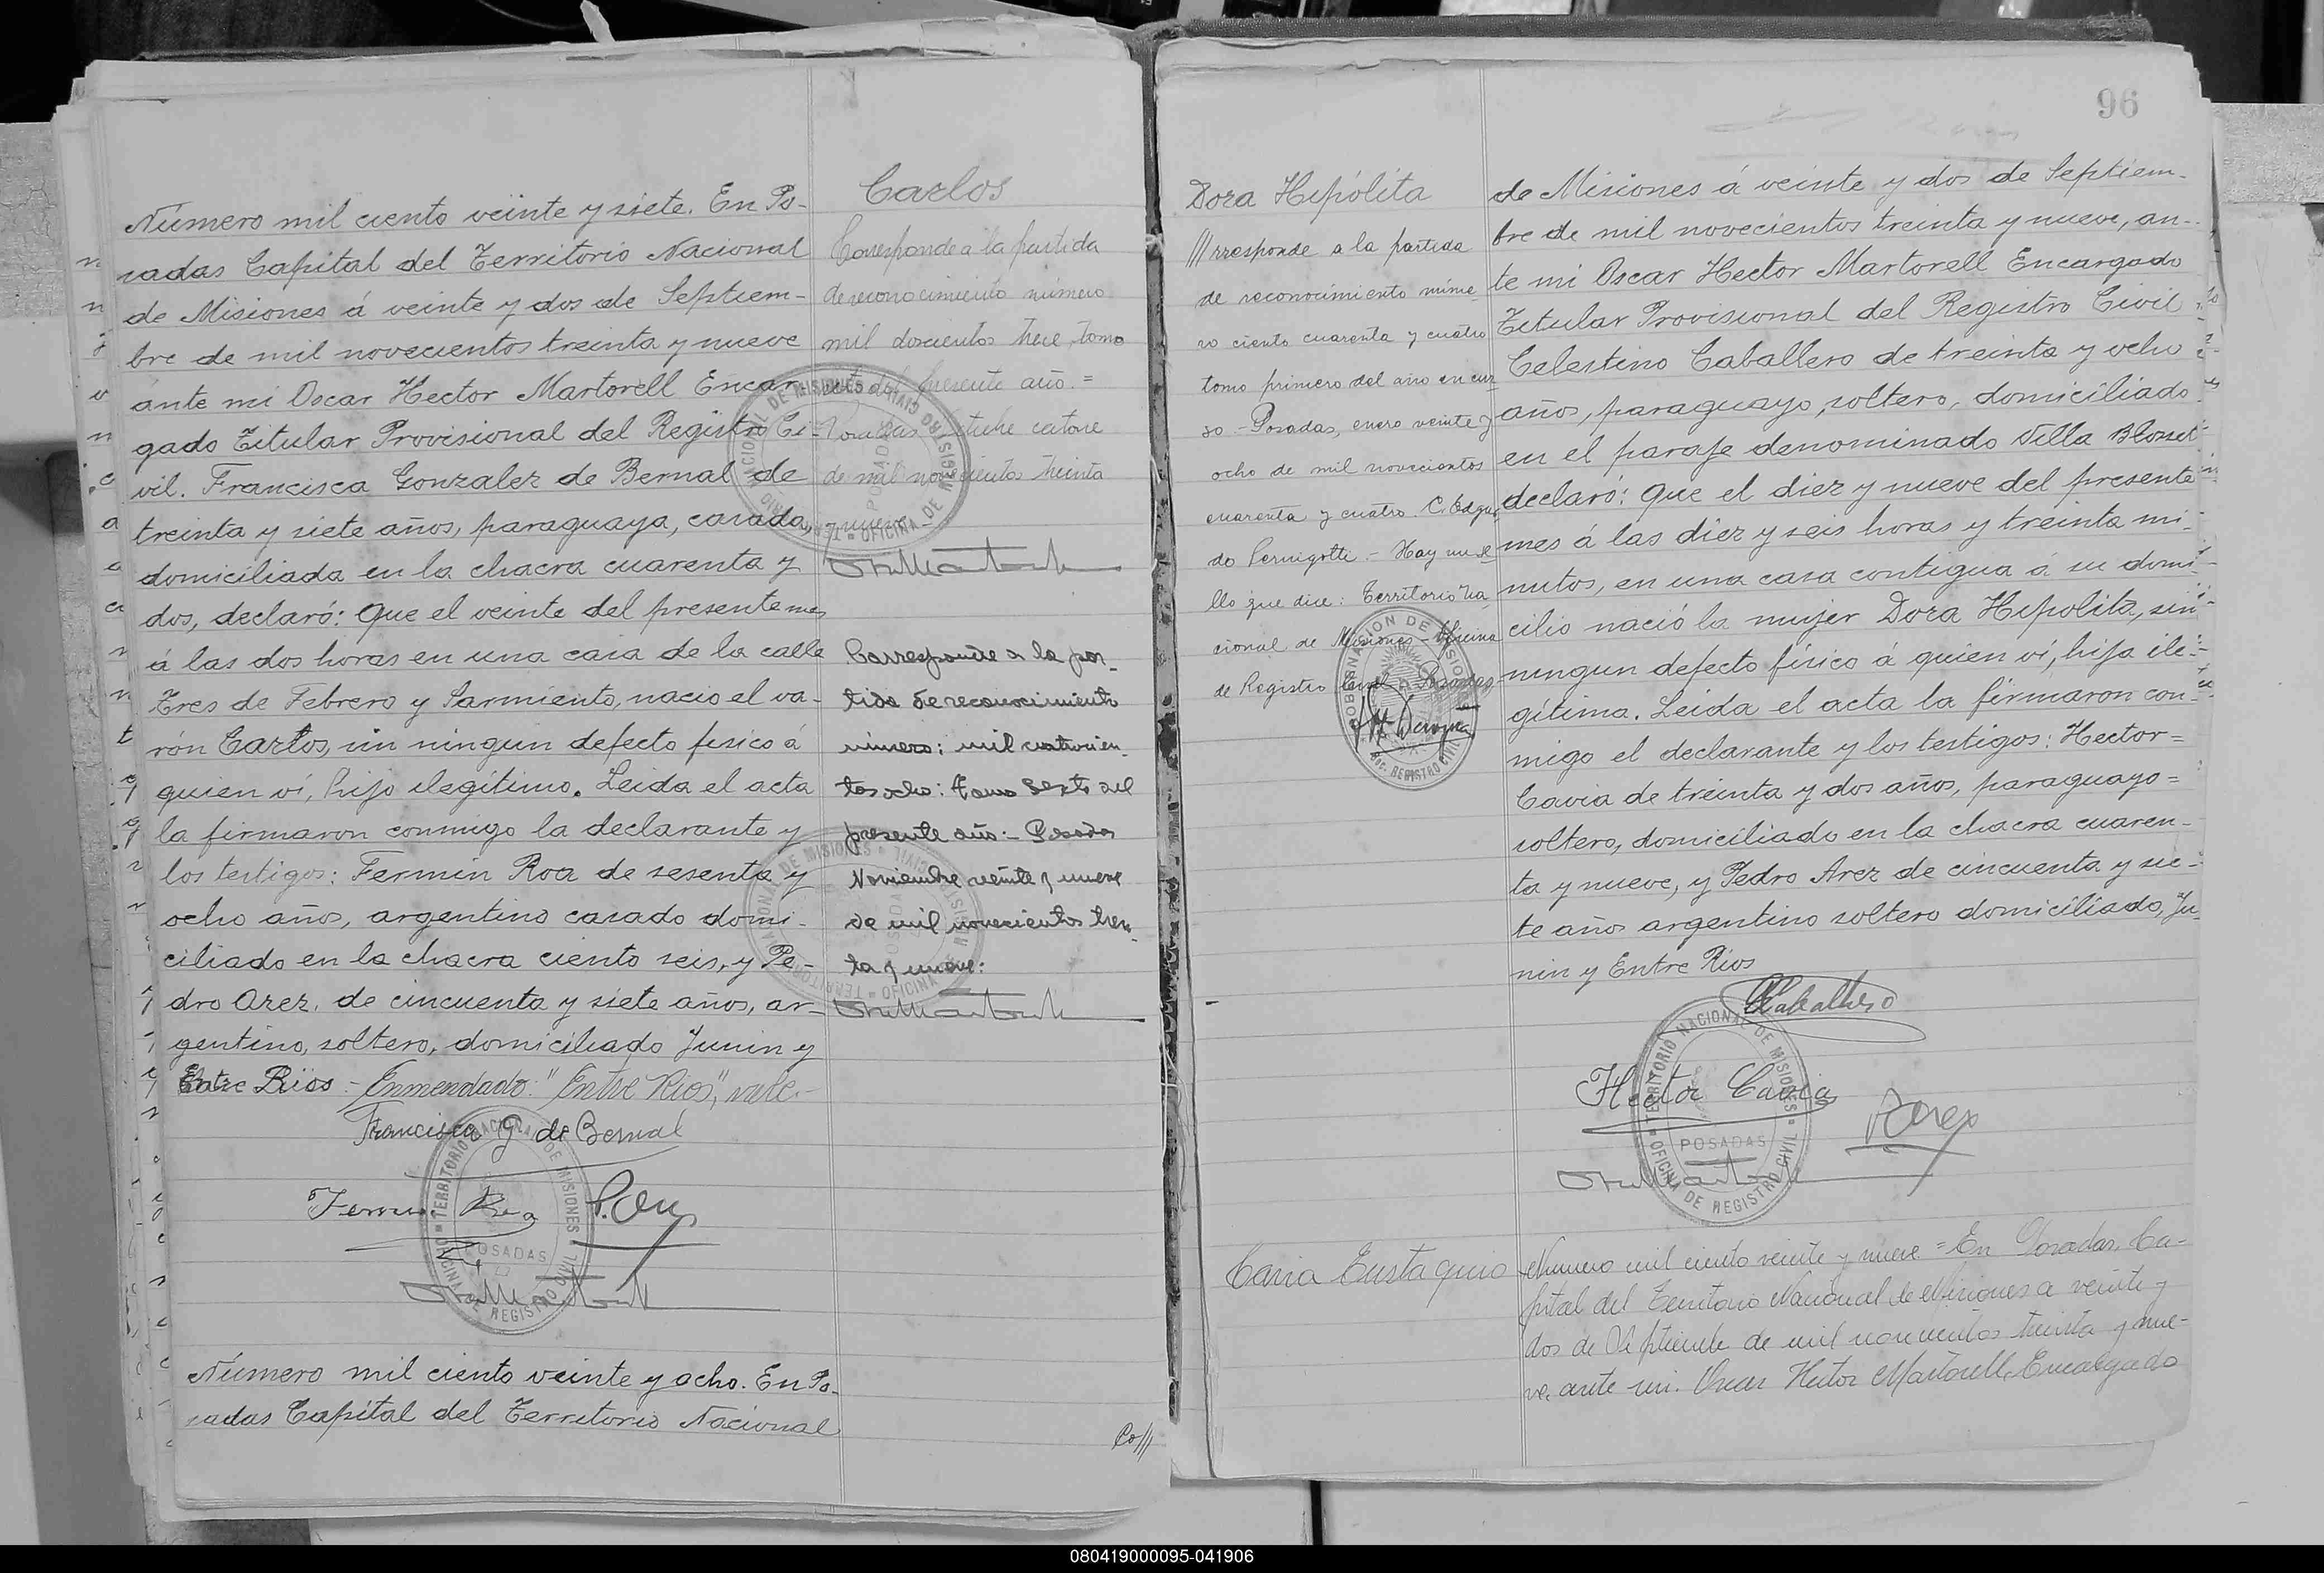 Número mil ciento veinte y siete. En Po-
sadas Capital del Territorio Nacional
de Misiones á veinte y dos de Septiem-
bre de mil novecientos treinta y nueve
ánte mi Oscar Hector Martorell Encar-
gado Titular Provisional del Registro Ci-
vil. Francisca Gonzalez de Bernal de
treinta y siete años, paraguaya, casada,
domiciliada en la chacra cuarenta y
dos, declaró: Que el veinte del presente mes
á las dos horas en una casa de la calle
Tres de Febrero y Sarmiento, nacio el va-
rón Carlos, sin ningun defecto fisico á
quien ví, hijo ilegítimo. Leida el acta
la firmaron conmigo la declarante y
los testigos: Fermin Roa de sesenta y
ocho años, argentino casado domi-
ciliado en la chacra ciento seis, y Pe-
dro Arez, de cincuenta y siete años, ar-
gentino, soltero, domiciliado Junin y
Entre Rios - Enmendado: "Entre Rios", vale.-
Francisca G de Bernal
Fermin Roa
TERRITORIO NACIONAL DE MISIONES
POSADAS
OFICINA DE REGISTRO CIVIL
Número mil ciento veinte y ocho. En Po-
sadas Capital del Territorio Nacional
Carlos
Corresponde a la partida
de reconocimiento número
mil doscientos trece, tomo
del presente año. =
Posadas Octubre catorce
de mil novecientos treinta
y nueve -
Corresponde a la par-
tida de reconocimiento
número: mil cuatrocien-
tos ocho: Tomo Sexto del
presente año: - Posadas
Noviembre veinte y nueve
de mil novecientos trein-
ta y nueve:
Co///
96
Dora Hipólita
///rresponde a la partida
de reconocimiento núme-
ro ciento cuarenta y cuatro
tomo primero del año en cur-
so - Posadas, enero veinte y
ocho de mil novecientos
cuarenta y cuatro C. Edgar-
do Pernigotti - Hay un se-
llo que dice: Territorio Na-
cional de Misiones - Oficina
de Registro Civil Posadas
GOBERNACION DE MISIONES
REGISTRO CIVIL
de Misiones á veinte y dos de Septiem-
bre de mil novecientos treinta y nueve, an-
te mi Oscar Hector Martorell Encargado
Titular Provisional del Registro Civil
Celestino Caballero de treinta y ocho
años, paraguayo, soltero, domiciliado
en el paraje denominado Villa Blosset
declaró: Que el diez y nueve del presente
mes á las diez y seis horas y treinta mi-
nutos, en una casa contigua á su domi-
cilio nació la mujer Dora Hipolita, sin
ningun defecto físico á quien ví, hija ile-
gítima. Leida el acta la firmaron con-
migo el declarante y los testigos: Hector=
Cavia de treinta y dos años, paraguayo=
soltero, domiciliado en la chacra cuaren-
ta y nueve, y Pedro Arez de cincuenta y sie-
te años argentino soltero domiciliado, Ju-
nin y Entre Rios
CCaballero
Hector Cavia
PArez
TERRITORIO NACIONAL DE MISIONES
POSADAS
OFICINA DE REGISTRO CIVIL
Numero mil ciento veinte y nueve = En Posadas, Ca-
pital del Territorio Nacional de Misiones a veinte y
dos de Septiembre de mil novecientos treinta y nue-
ve, ante mi. Oscar Hector Martorell, Encargado
Eustaquio
080419000095-041906